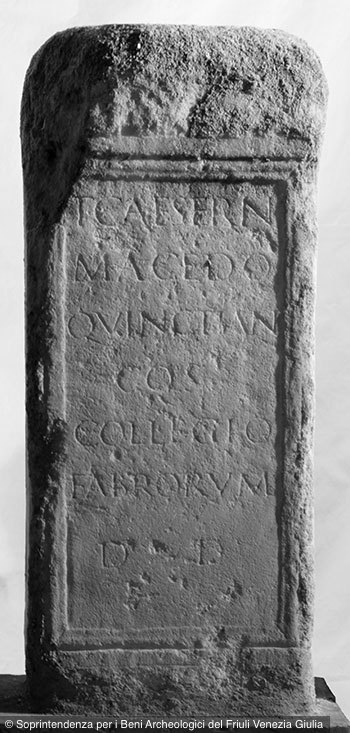 T CAESERN
MACEDO
QVINCTIAN
COS
COLLEGIO
FABRORVM
D D
© Soprintendenza per i Beni Archeologici del Friuli Venezia Giulia